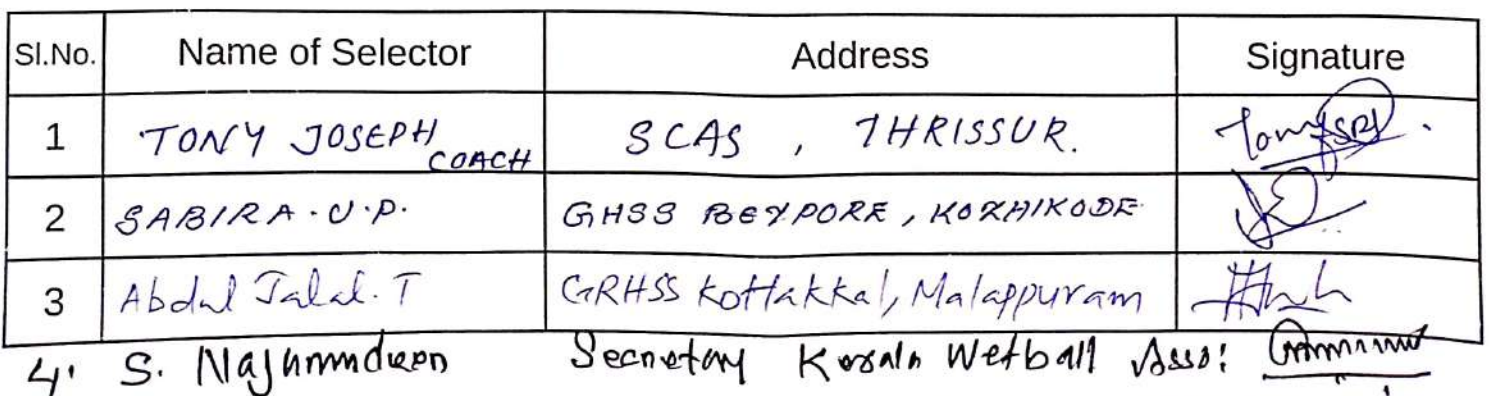 Sl.No. Name of Selector Address Signature
1 TONY JOSEPH COACH SCAS , THRISSUR.
2 SABIRA.U.P. GHSS BEYPORE, KOZHIKODE
3 Abdul Jalal. T GRHSS Kottakkal, Malappuram
4. S. Najumudeen Secretary Kerala Netball Asso: